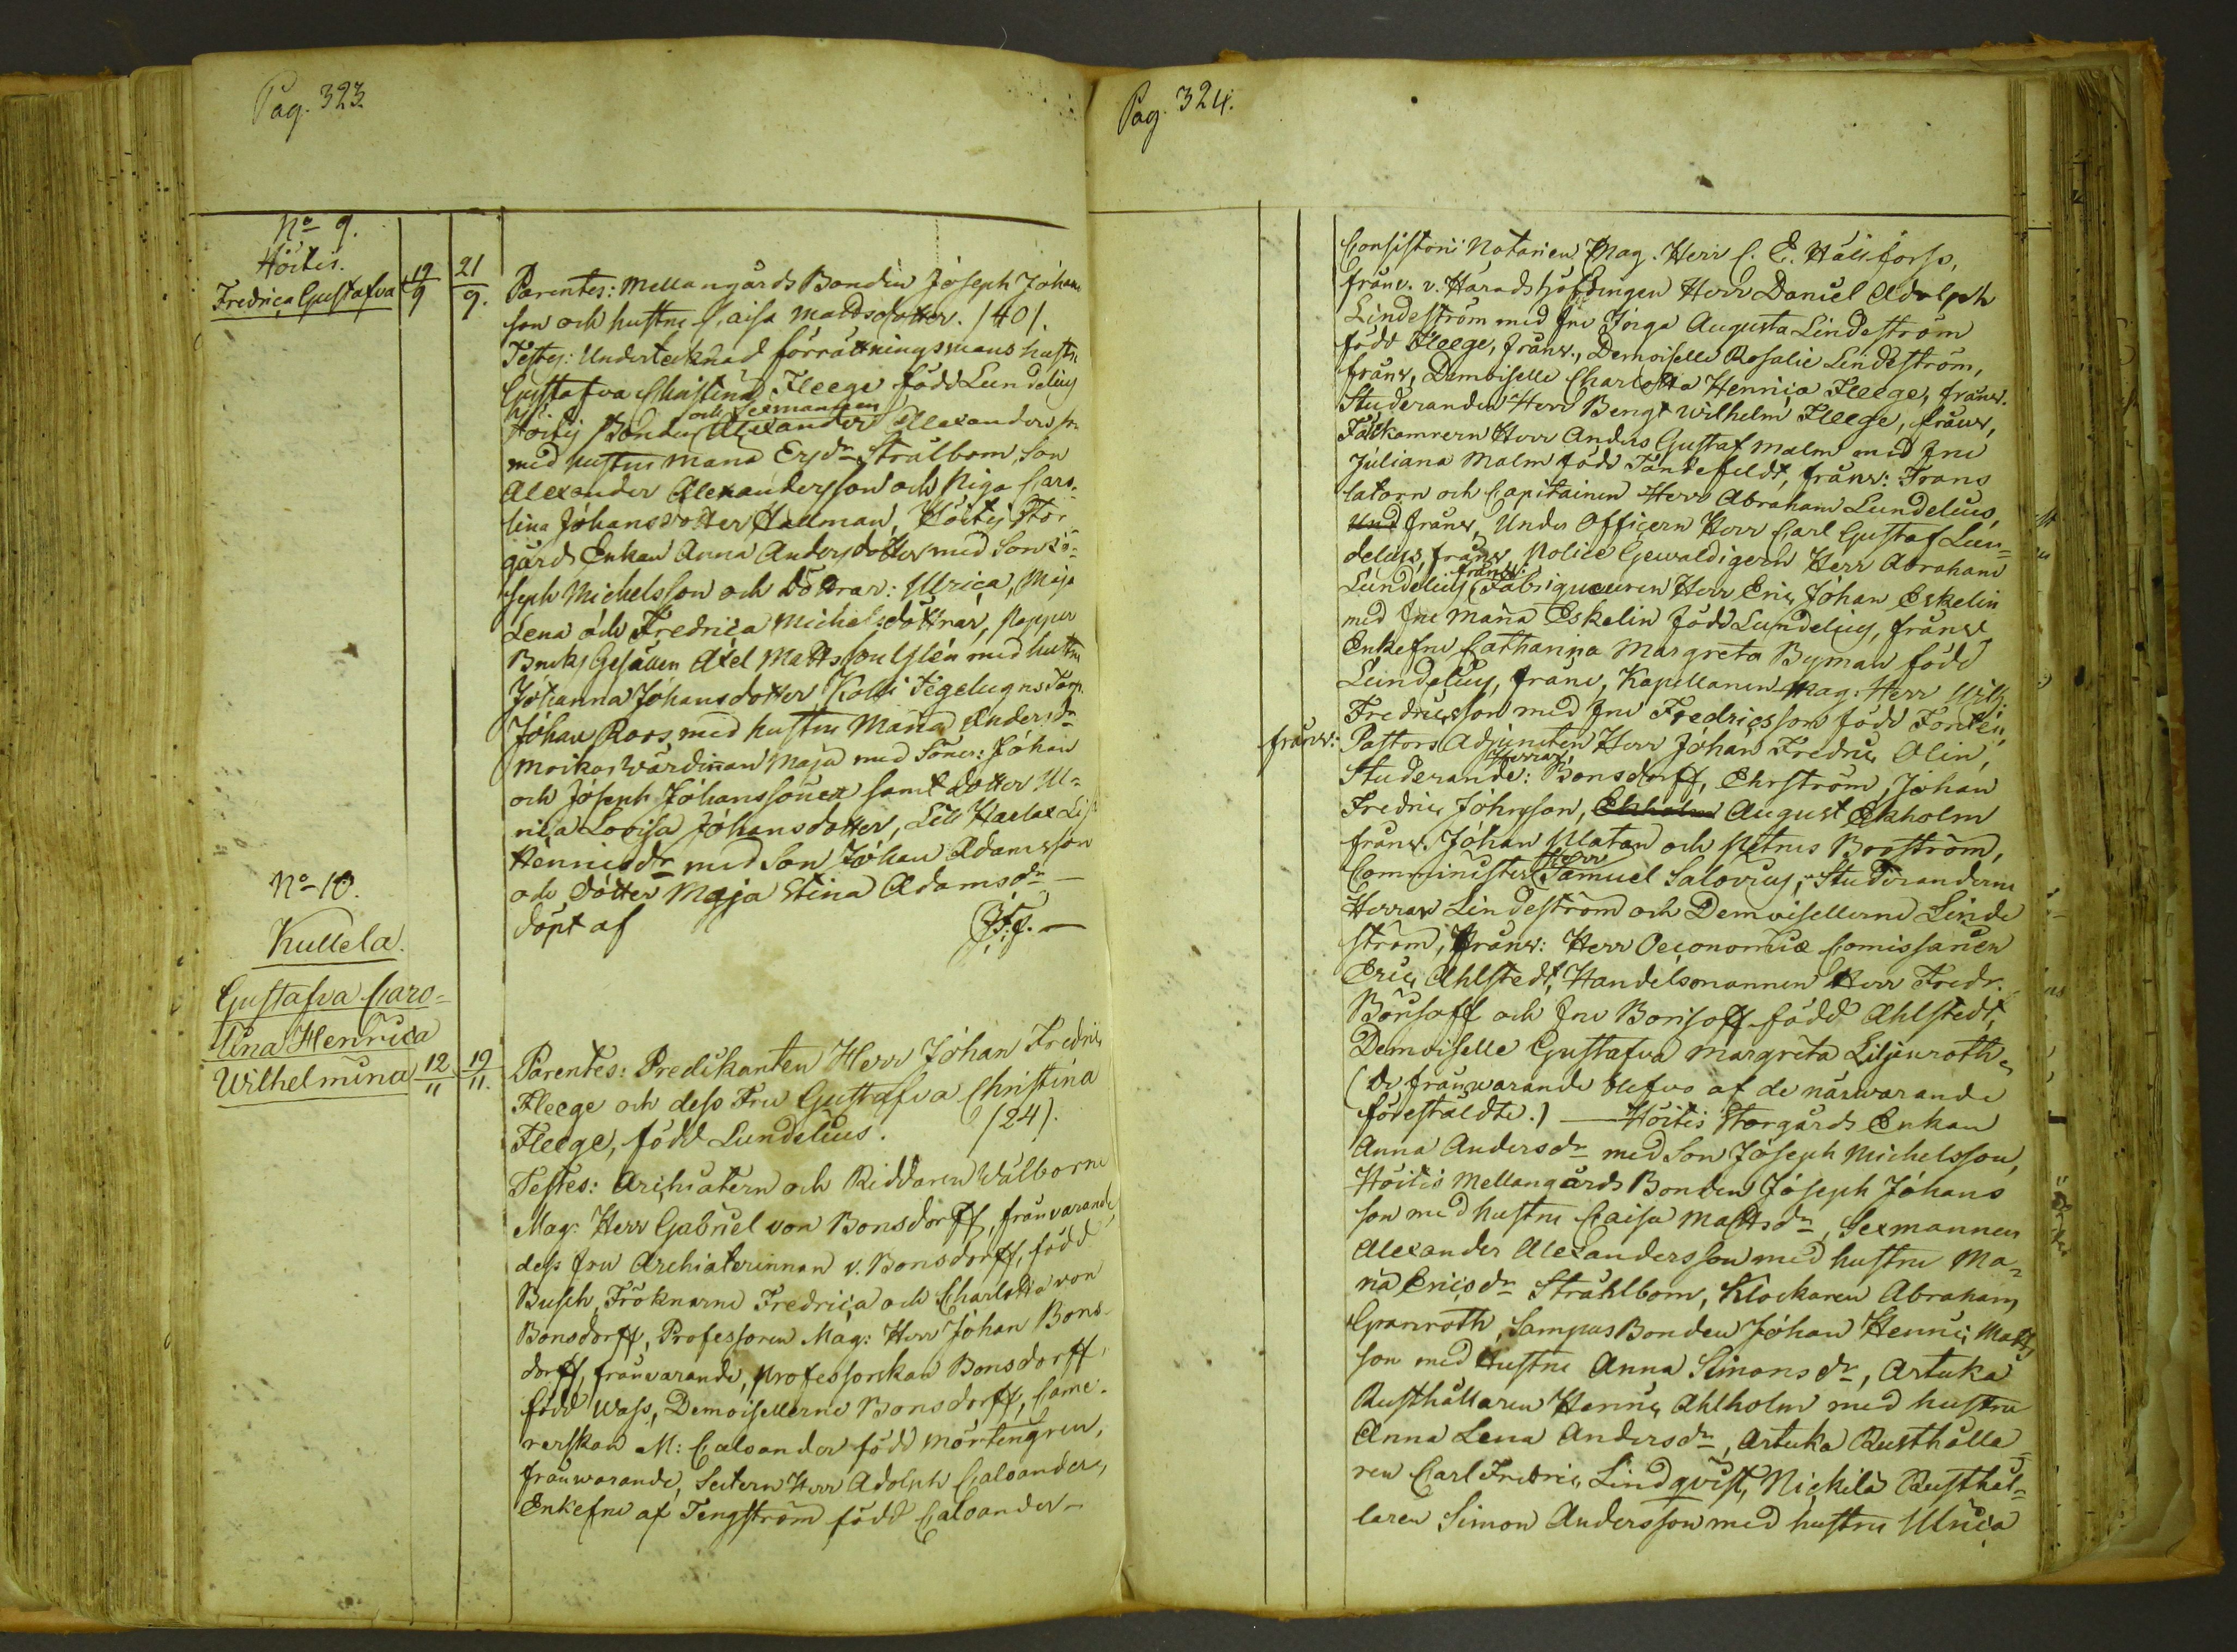 Pag. 323.
No 9.
Höitis.
Fredrica Gustafva
19/9
21/9.
Parentes: Mellangårds Bonden Joseph Johans
son och hustru Caisa Mattsdotter. /40/.
Testes: Undertecknad förrättningsmans hustru
Gustafva Christina Fleege född Lundelius
och Sexmannen
Höitis Bonden Alexander Alexanderss
med hustru Maria Ersdr Strålbom, Son
Alexander Alexandersson och Piga Caro-
lina Johansdotter Hallman, Höitis Stor
gårds Enkan Anna Andersdotter med Son Jo-
seph Michelsson och Döttrar: Ulrica, Maja
Lena och Fredrica Michelsdöttrar,
Bruks Gesällen Axel Mattsson med hustru
Johanna Johansdotter, Tegelugns Torp.
Johan Roos med hustru Maria Andersdr
Moikas Värdinnan Maja med Söner: Johan
och Joseph Johanssöner samt dotter Ul-
rica Lovisa Johansdotter,
Henricsdr med Son Johan Adamsson
och Dotter Maja Stina Adamsdr —
döpt af J.F.F. —
No 10.
Kullela.
Gustafva Caro-
lina Henrica
Wilhelmina
12/11
19/11.
Parentes: Predikanten Herr Johan Fredric
Fleege och dess Fru Gustafva Christina
Fleege, född Lundelius. /24/.
Testes: Archiatern och Riddaren Välborne
Mag. Herr Gabriel von Bonsdorff, frånvarande,
dess fru Archiaterinnan v. Bonsdorff, född
Busch, Fröknarne Fredrica och Charlotta von
Bonsdorff, Professoren Mag: Herr Johan Bons-
dorff, frånvarande, Professorskan Bonsdorff,
född Wass, Demoisellerne Bonsdorff, Came-
rerskan M: Caloander född Mörtengren,
frånwarande, Herr Adolph Caloander,
Enkefru af Tengström född Caloander —
Pag. 324.
Consistorii Notarien Mag. Herr C. E. Hällfors,
frånv. v. Häradshöfdingen Herr Daniel Adolph
Lindeström med fru Inga Augusta Lindeström
född Fleege, frånv., Demoiselle Rosalie Lindeström,
frånv, Demoiselle Charlotta Henrica Fleege, frånv.
Studeranden Herr Bengt Wilhelm Fleege, frånv,
Herr Anders Gustaf Malm med fru
Juliana Malm född Tandefeldt, frånv: Trans
latorn och Capitainen Herr Abraham Lundelius,
Und frånv, Under Officern Herr Carl Gustaf Lun-
delius, frånv, Police Gewaldigern Herr Abraham
frånv:
Lundelius, Fabriqueuren Herr Eric Johan Eskelin
med fru Maria Eskelin född Lundelius, frånv
Enkefru Catharina Margreta Byman född
Lundelius, frånv, Kapellanen Mag: Herr Wilh.
Fredricsson med fru Fredricsson född Fontén,
frånv:
Pastors Adjuncten Herr Johan Fredric Olin,
Herrar
Studerande: Bonsdorff, Ehrström, Johan
Fredric Johnsson, Ekholm August Ekholm
frånv. Johan Platan och Petrus Boström,
Herr
Comminister Samuel Salovius; Studeranderne
Herrar Lindeström och Demoisellerne Linde
ström, frånv: Herr Oeconomiæ Comissarien
Eric Ahlstedt, Handelsmannen Herr Fredr.
Borisoff och fru Borisoff född Ahlstedt,
Demoiselle Gustafva Margreta Liljenroth,
(De frånvarande blefvo af de närwarande
föreställdte.) — Höitis Storgårds Enkan
Anna Andersdr med Son Joseph Michelsson,
Höitis Mellangårds Bonden Joseph Johans
son med hustru Caisa Mattsdr, Sexmannen
Alexander Alexandersson med hustru Ma-
ria Ericsdr Stråhlbom, Klockaren Abraham
Granroth, Sampus Bonden Johan Henric Matts
son med hustru Anna Simonsdr, Artuka
Rusthållaren Henric Ahlholm med hustru
Anna Lena Andersdr, Artuka Rusthålla-
ren Carl Fredric Lindqvist, Nickilä Rusthål-
laren Simon Andersson med hustru Ulrica